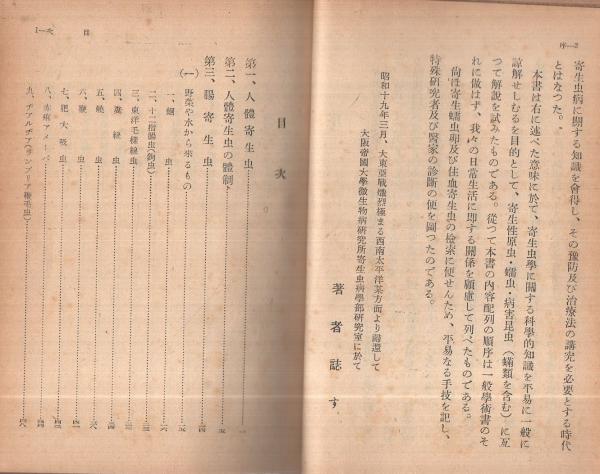 序—2
寄生虫病に關する知識を會得し、その豫防及び治療法の講究を必要とする時代
とはなつた。
本書は右に述べた意味に於て、寄生虫學に關する科學的知識を平易に一般に
諒解せしむるを目的として、寄生性原虫・蠕虫・病害昆虫(蟎類を含む)に亙
つて解說を試みたものである。從つて本書の內容配列の順序は一般學術書のそ
れに倣はず、我々の日常生活に即する關係を顧慮して列べたものである。
尙ほ寄生蠕虫卵及び住血寄生虫の檢索に便せんため、平易なる手技を記し、
特殊硏究者及び醫家の診斷の便を圖つたのである。
昭和十九年三月、大東亞戰熾烈極まる西南太平洋某方面より歸還して
大阪帝國大學微生物病硏究所寄生虫病學部硏究室に於て
著者誌す
目次
目 次—1
第一、人體寄生虫……一
第二、人體寄生虫の體制……五
第三、腸寄生虫
(一) 野菜や水から來るもの
一、蛔虫
二、十二指腸虫(鉤虫)
三、東洋毛樣線虫
四、糞線虫
五、蟯虫
六、鞭虫
七、肥大吸虫
八、赤痢アメーバ
九、ヂアルヂア(ランブリア鞭毛虫)……四八